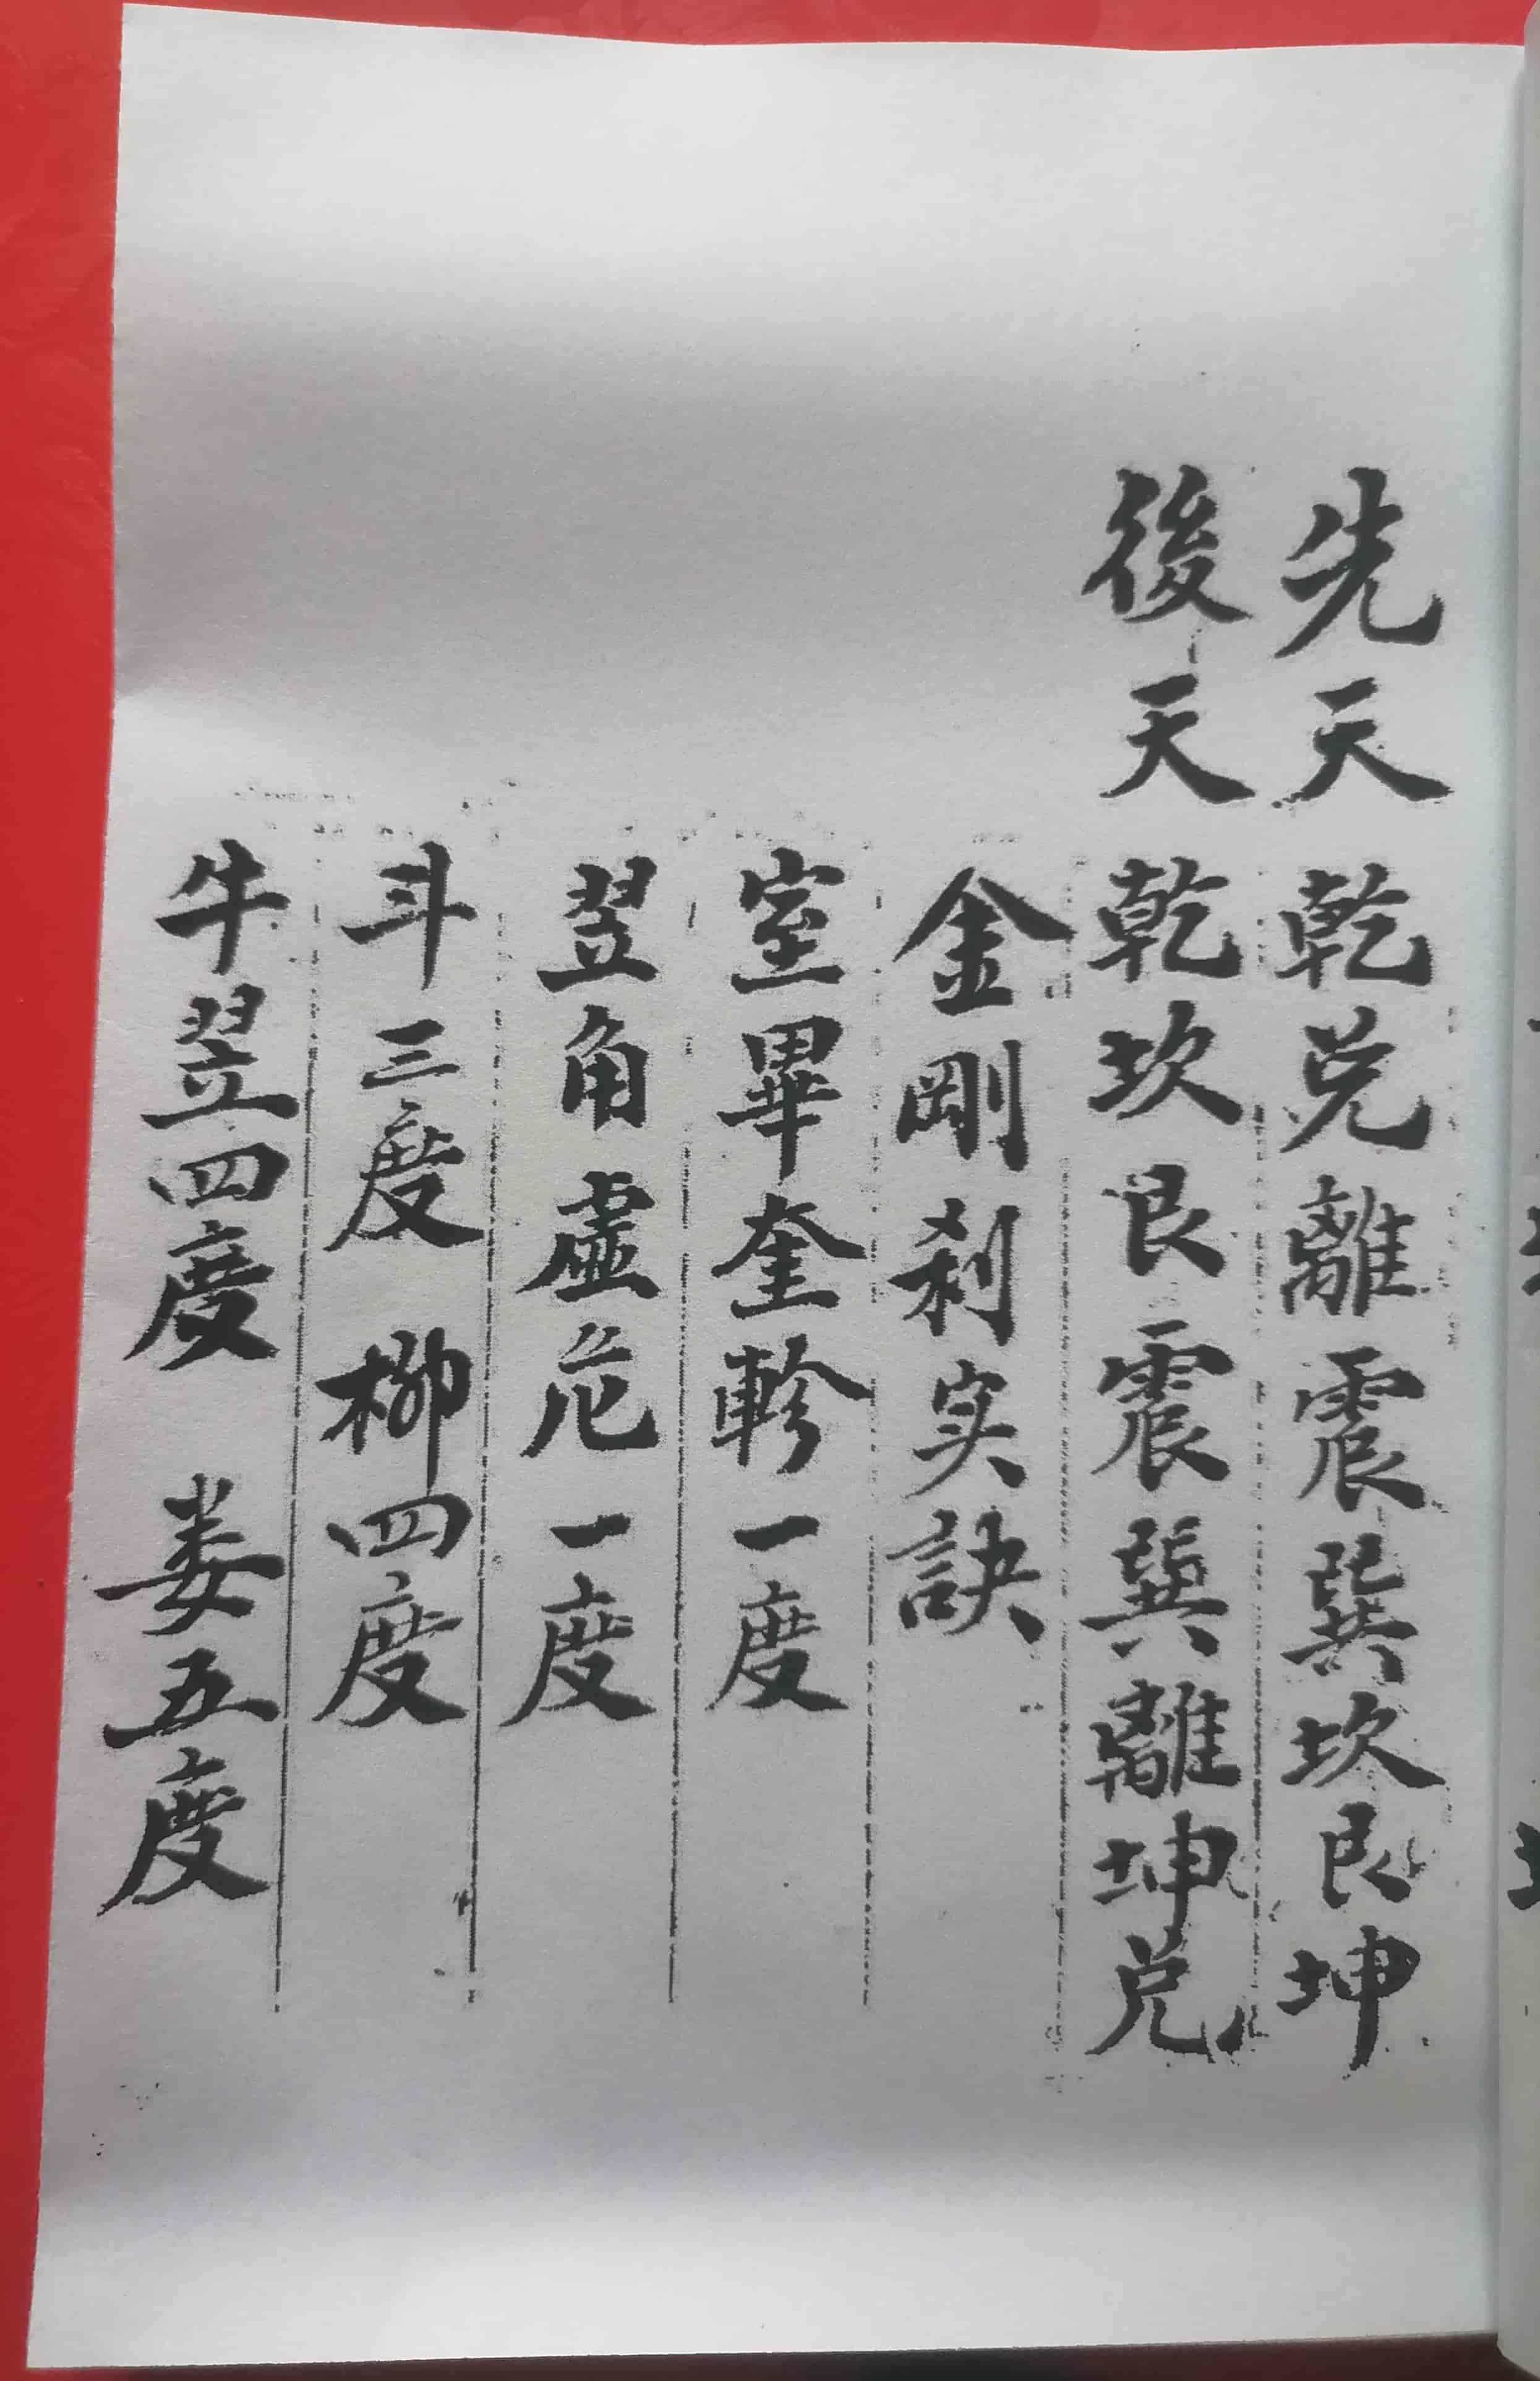 先天 乾兑離震巽坎艮坤
後天 乾坎艮震巽離坤兑
金剛刹实訣
室畢奎軫一度
翌角虚危一度
斗三度 柳四度
牛翌四度 娄五度